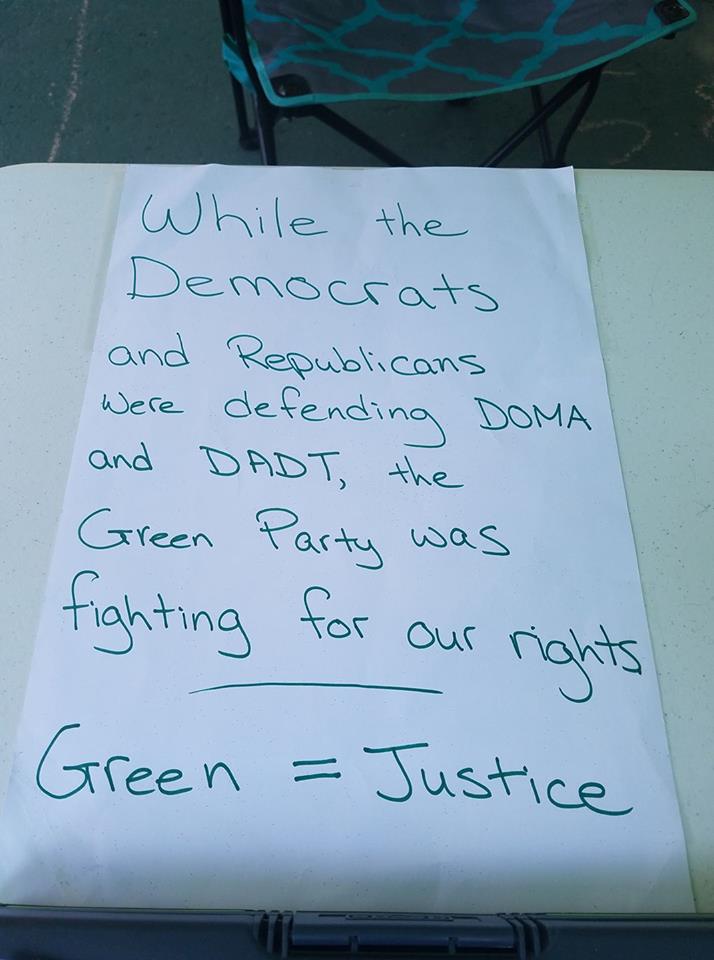 While the
Democrats
and Republicans
were defending DOMA
and DADT, the
Green Party was
fighting for our rights
Green = Justice